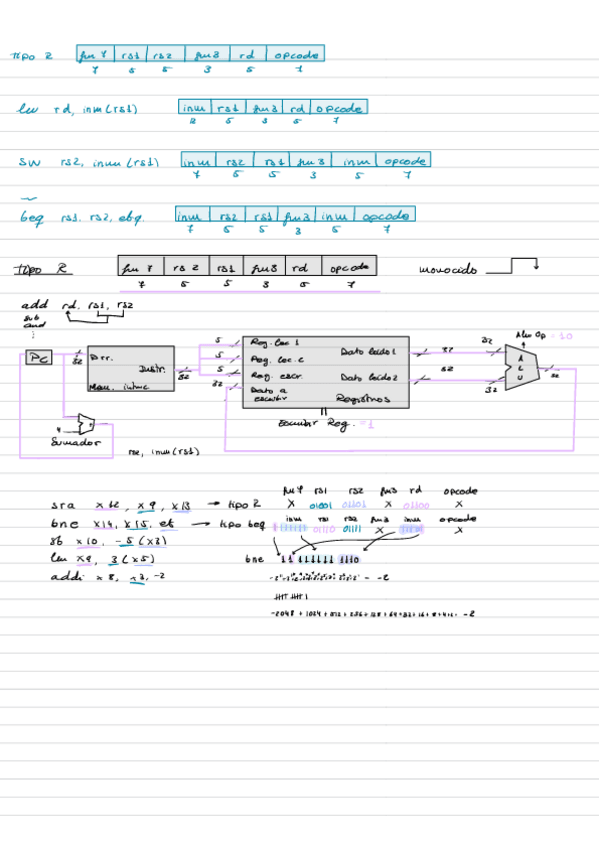 tipo R fun7 rs1 rs2 fun3 rd opcode
7 5 5 3 5 7
lw rd, inm(rs1) inm rs1 fun3 rd opcode
12 5 3 5 7
sw rs2, inm(rs1) inm rs2 rs1 fun3 inm opcode
7 5 5 3 5 7
beq rs1, rs2, etq. inm rs2 rs1 fun3 inm opcode
7 5 5 3 5 7
tipo R fun7 rs2 rs1 fun3 rd opcode monociclo
7 5 5 3 5 7
add rd, rs1, rs2
sub
and
Alu Op = 10
PC 32 Dirr. Instr. Mem. instruc 32
5 Reg. lec 1 Dato leido1 32 32
5 Reg. lec. 2
5 Reg. escr. Dato leido2 32 32
32 Dato a escribir Registros
ALU 32
4 +
Sumador
Escribir Reg. = 1
rs2, inm(rs1)
fun7 rs1 rs2 fun3 rd opcode
sra x12, x9, x13 → tipo R X 01001 01101 X 01100 X
inm rs1 rs2 fun3 inm opcode
bne x14, x15, et → tipo beq 01110 01111 X X
sb x10, -5(x3)
lw x9, 3(x5) bne 11 111111 1110
addi x8, x3, -2
-2048 + 1024 + 512 + 256 + 128 + 64 + 32 + 16 + 8 + 4 + 2 = -2